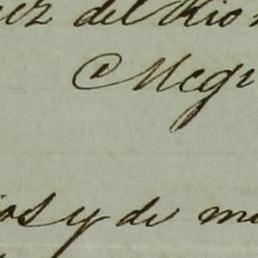 uez del Rio
Megi
os y de mi